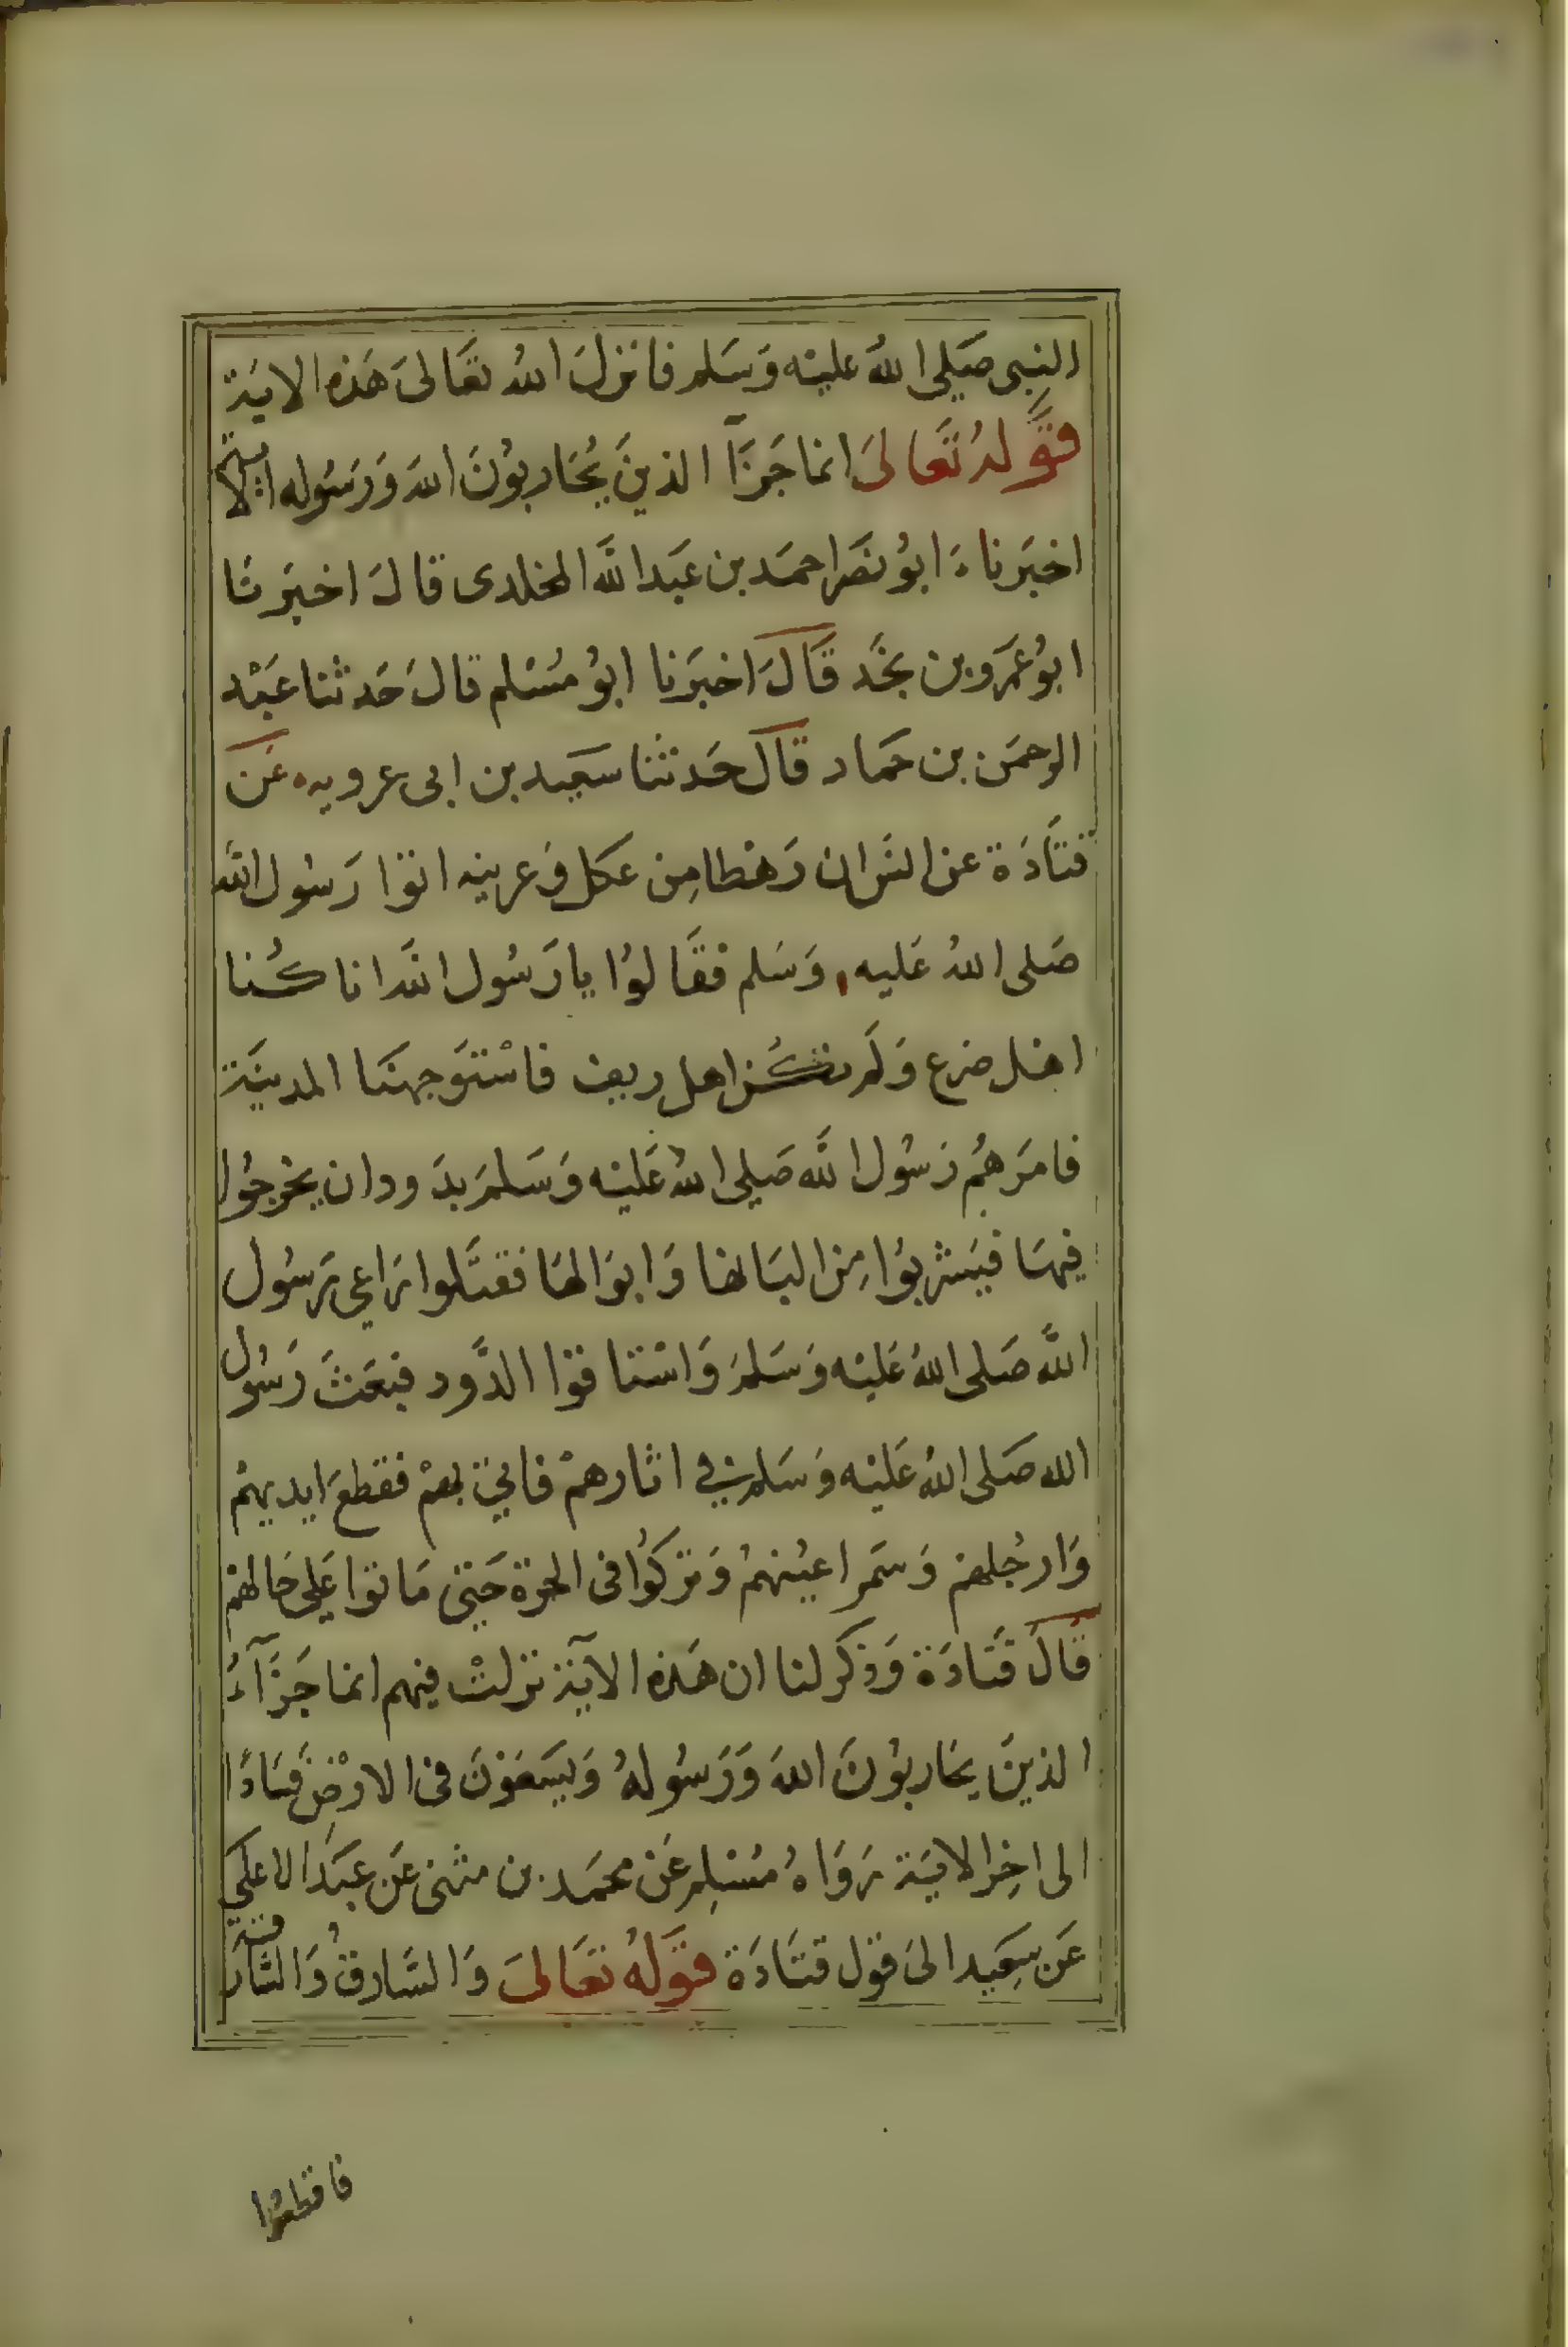 النبى صَلى اللهُ عليْه وَسَلم فانزلَ اللهُ تعَالىَ هَذه الايَة
قَولهُ تَعَالىَ انما جَزَآ الذينَ يُحَاربوُنَ اللهَ وَرَسُوله الاية
اخبَرناء ابوُ نصَر احمَد بن عَبَد اللَّه المخلدى قالَ اخبَرنا
ابوُ عمَرو بن نجَد قَالَ اخبَرَنا ابوُ مُسْلم قالَ حَدثنا عَبْد
الرحمَن بن حَماد قَالَ حَدثنا سَعَيد بن ابى عروبه عَن
قتَادَة عَن انس ان رَهْطا مِن عكل وَعرينه اتوا رَسُول اللَّه
صَلى اللهُ عَليه وَسَلم فقَالوُا يا رَسُول اللَّه انا كُنا
اهَل ضرع وَلَم نكُن اهل ريف فاسْتوَجهنَا المدينَة
فامرَهُم رَسُول اللَّه صَلى اللهُ عَليْه وَسَلمَ بدَود ان يخرجوُا
فيهَا فيَشربوُا مِن البَالهَا وَابوَالهَا فقتَلوا رَاعى رَسُول
اللَّه صَلى اللهُ عَليْه وَسَلمَ وَاسْتاقوا الدَّود فبَعَثَ رَسُول
الله صَلى اللهُ عَليْه وَسَلم في اثارهمْ فاتىَ بهمْ فقطعَ ايديهمْ
وَارجُلهم وَسَمر اعيُنهمُ وَتركوُا فى الحرة حَتى مَاتوا عَلى حَالهمْ
قَالَ قَتادَة وَذكر لنا ان هَذه الآيَة نزلتْ فيهم انما جَزَآءُ
الذينَ يحَاربوُنَ اللهَ وَرَسُولهُ وَيسَعَوْنَ فى الارْضِ فسَادًا
الى اخِر الايَة رَوَاهُ مُسْلِم عَن محمَد بن مثنى عَن عَبَد الاعلى
عَن سِعَيد الىَ قول قتَادَة قوَلهُ تعَالىَ وَالسَّارقُ وَالسَّارقة
فاقطعُوا